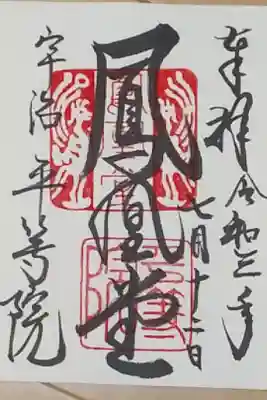 奉拝 令和三年
七月十二日
鳳凰堂
宇治 平等院